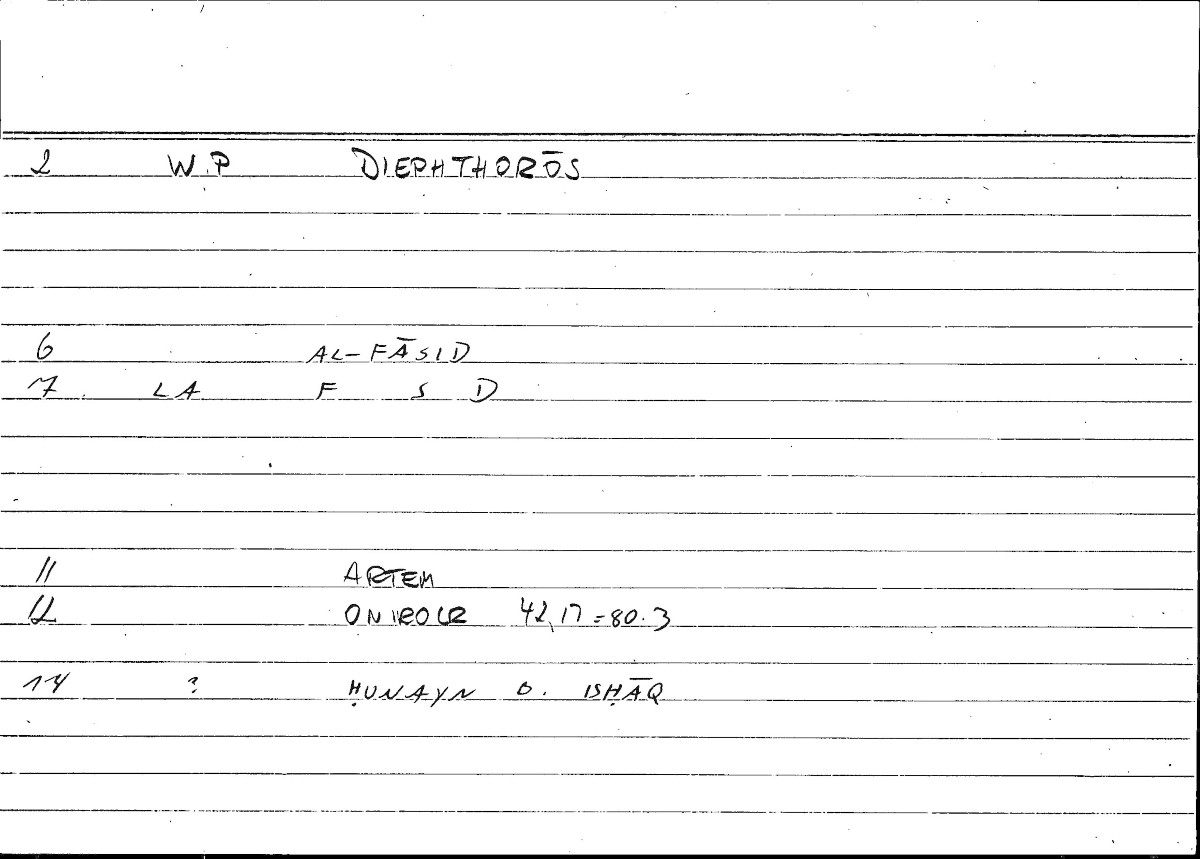 2 W.P DIEPHTHORŌS
6 AL-FĀSID
7 LA F S D
11 ARTEM
12 ONIROCR 42,17=80.3
14 ? ḤUNAYN b. ISḤĀQ